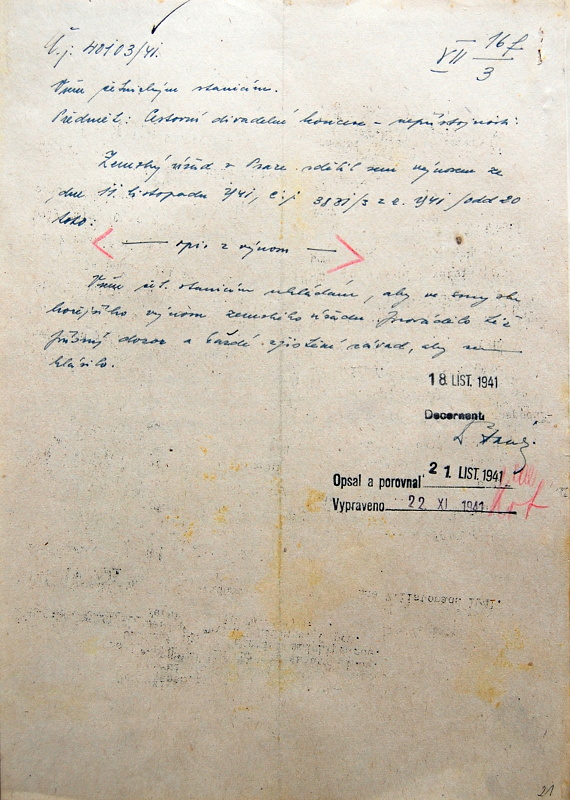 Č.j. 40103/41.
VII 16f/3
Všem četnickým stanicím.
Předmět: Cestovní divadelní koncese - nepřístojnosti.
Zemský úřad v Praze sdělil sem výnosem ze
dne 11. listopadu 1941, č.j. 3831/3 z r. 1941 /odd 20
toto:
< — opis z výnosu — >
Všem čet. stanicím ukládám, aby ve smyslu
hořejšího výnosu zemského úřadu prováděly též
přísný dozor a každé zjištění závad, aby se
hlásilo.
18. LIST. 1941
Decernent:
Opsal a porovnal 21. LIST. 1941
Vypraveno 22 XI 1941
listopadu 1941.
21